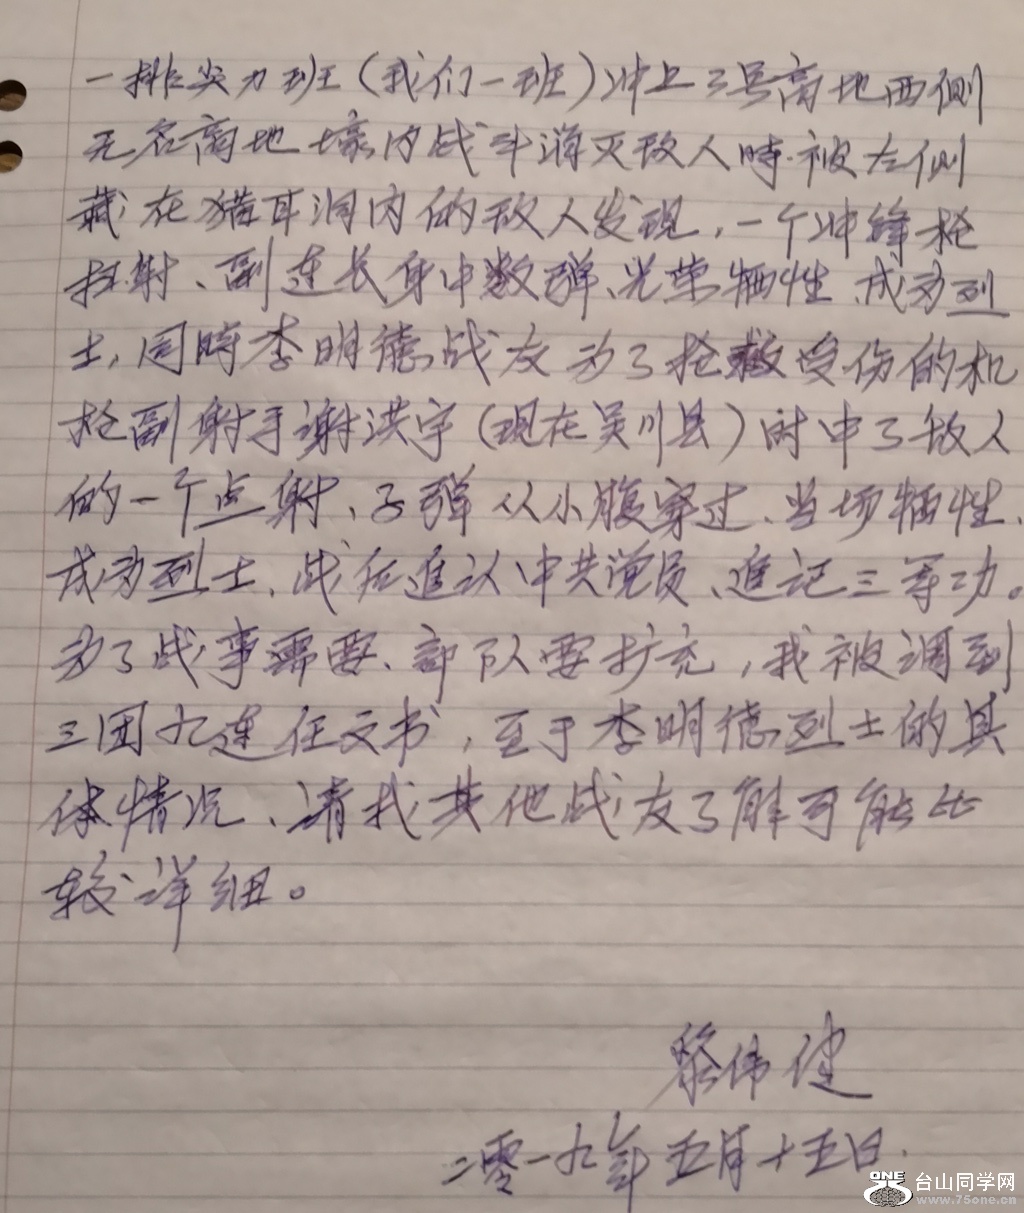 一排尖刀班（我们一班）冲上3号高地西侧
无名高地壕内战斗消灭敌人時.被左侧
藏在猫耳洞内的敌人发现，一个冲锋枪
扫射、副连长身中数弹、光荣牺牲、成为烈
士，同時李明德战友为了抢救受伤的机
枪副射手谢洪宇（现在吴川县）时中了敌人
的一个点射、子弹从小腹穿过、当场牺牲、
成为烈士、战后追认中共党员、追记三等功。
为了战事需要、部队要扩充，我被调到
三团九连任文书，至于李明德烈士的具
体情况、请找其他战友了解可能比
较详细。
黎伟健
二零一九年五月十五日.
ONE 台山同学网
www.75one.cn